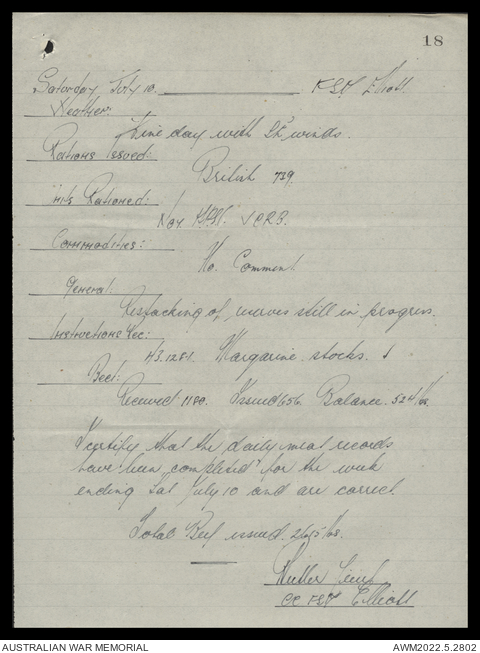 18
Saturday July 10. F.S.D. Elliott.
Weather:
Fine day with Lt. winds.
Rations Issued:
British 739.
Units Rationed:
No.
Commodities:
No. Comment
General:
Restacking of still in progress.
Instructions Rec:
43.1281. Margarine stocks.
Beef:
Received 1180. Issued 656. Balance. 524 lbs.
I certify that the daily meat records
have been completed for the week
ending Sat July 10 and are correct.
Total Beef issued. lbs.
Lieut
OC FSD Elliott
AUSTRALIAN WAR MEMORIAL
AWM2022.5.2802